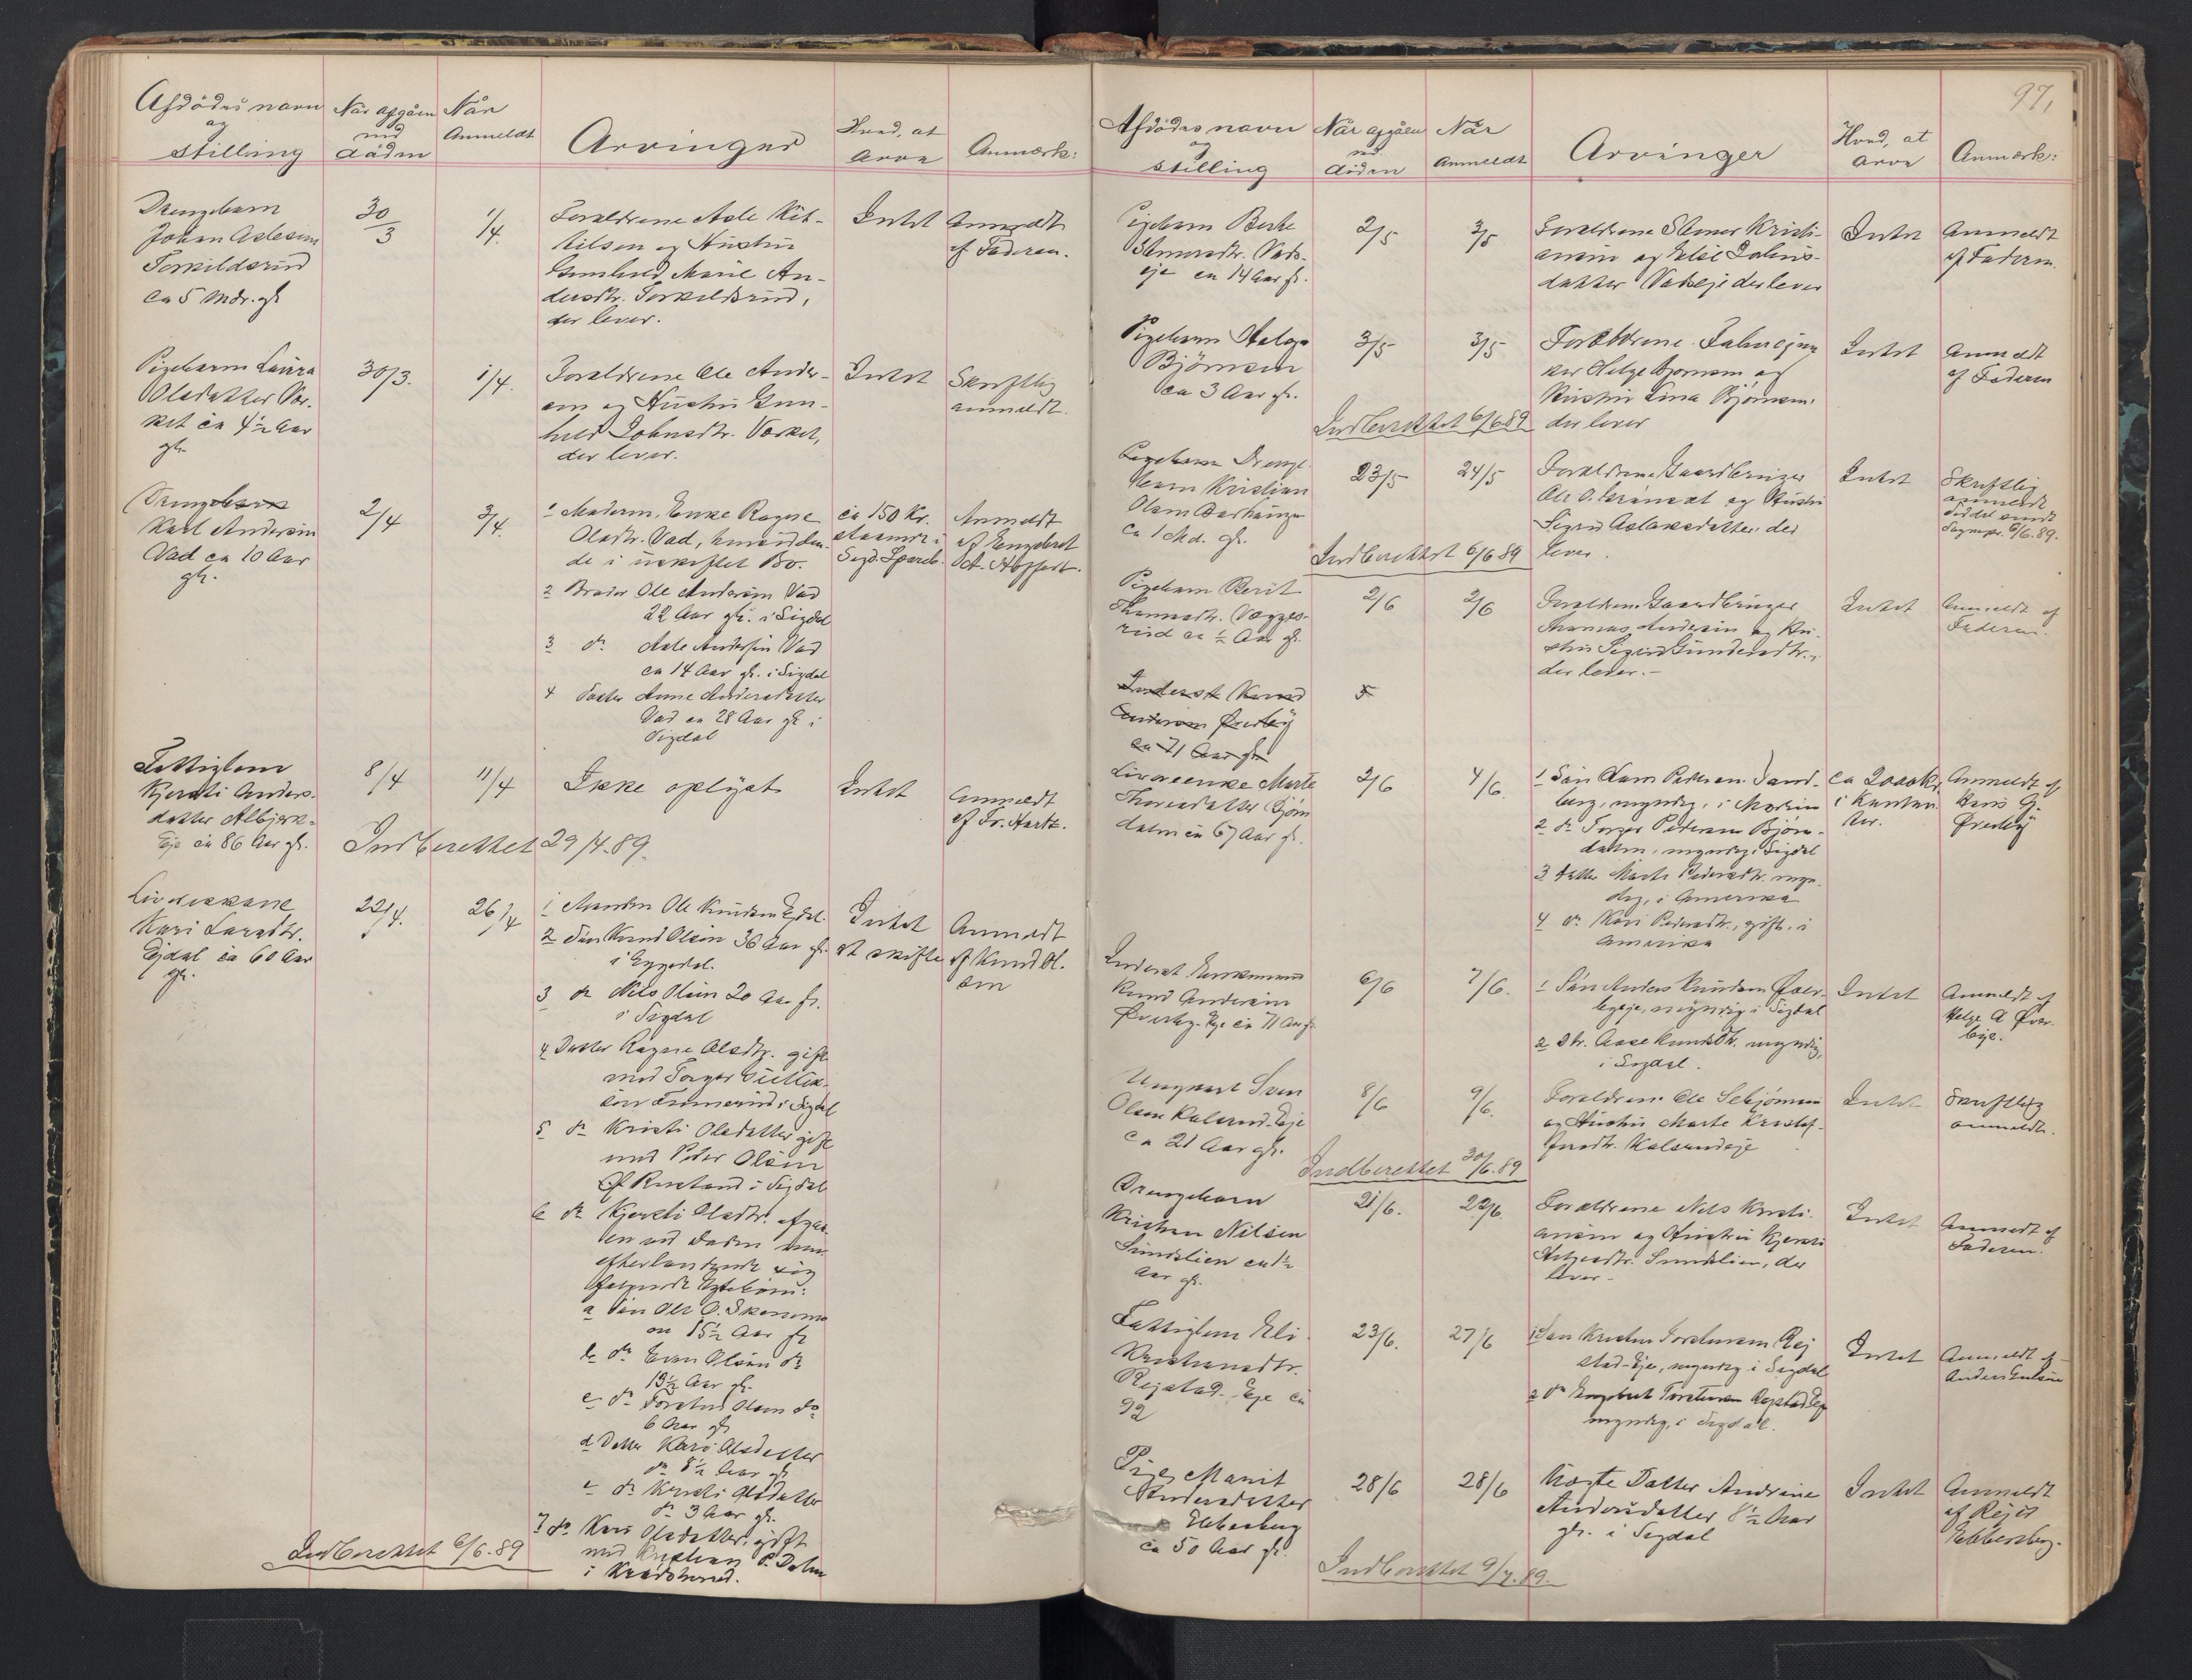 Afdødes navn
og
stilling
Når afgåen
ved
døden
Når
Anmeldt
Arvinger
Hvad, at
arve
Anmærk:
Drengebarn
Johan Aslesen
Torkildsrud
ca 5 Mdr. gl
30/3
1/4.
Forældrene Asle Kit-
tilsen og Hustru
Gunhild Marie An-
dersdtr. Torkildsrud,
der lever.
Intet
Anmeldt
af Faderen.
Pigebarn Laura
Olsdatter Vær-
ket ca 4½ Aar
gl.
30/3.
1/4.
Forældrene Ole Ander-
sen og Hustru Gun-
hild Johnsdtr. Værket,
der lever.
Intet
Skriftlig
anmeldt.
Drengebarn
Karl Andersen
Vad ca 10 Aar
gl.
2/4
3/4.
1 Moderen, Enke Ragne
Olsdtr. Vad, hensidden-
de i uskiftet Bo.
2 Broder Ole Andersen Vad
22 Aar gl. i Sigdal
3 do Asle Andersen Vad
ca 14 Aar gl. i Sigdal
4 Søster Anne Andersdatter
Vad ca 28 Aar gl i
Sigdal
ca 150 Kr.
Sigd. Spareb.
Anmeldt
af Engebret
A. Hoffart.
Fattiglem
Kjersti Anders-
datter Albjerk-
Eje ca 86 Aar gl.
8/4
11/4
Ikke oplyst
Intet
Anmeldt
af Fr. Hartz.
Indberettet 29/4.89.
Kari Larsdtr.
Ejdal ca 60 Aar
gl.
22/4.
26/4
1 Manden Ole Knudsen Ejdal.
2 Søn Knud Olsen 36 Aar gl.
i Eggedal.
3 do Nils Olsen 20 Aar gl.
i Sigdal
4 Datter Ragne Olsdtr. gift
med Torger
i Sigdal
5 do Kristi Olsdatter gift
med Peder Olsen
i Sigdal
6 do Kjersti Olsdtr. afgaa-
en ved Døden men
efterladende sig
følgende Ægtebørn:
a Søn Ole O. Skommo
15½ Aar gl
b do Even Olsen do
13½ Aar gl.
c do Torsten Olsen do
6 Aar gl
d Datter Kari Olsdatter
do 8½ Aar gl
e do Kersti Olsdatter
do 3 Aar gl.
7 do Kari Olsdatter, gift
med Kristian P. Dalen
i Krødsherred.
Intet
at skifte
Anmeldt
af Knud Ol-
sen
Indberettet 6/6.89
97,
Afdødes navn
og
stilling
Når afgåen
ved
døden
Når
Anmeldt
Arvinger
Hvad, at
arve
Anmærk:
Pigebarn Berte
Stenersdtr. Vads-
eje ca 14 Aar gl.
2/5
3/5
Forældrene Stener Kristi-
ansen og Else Johns-
datter Vadseje der lever
Intet
Anmeldt
af Faderen.
Pigebarn Helga
Björnsen
ca 3 Aar gl.
3/5
3/5
Forældrene
Helge Bjørnsen og
Hustru Lina Bjørnsen,
der lever
Intet
Anmeldt
af Faderen
Indberettet 6/6 89
Pigebarn Drenge-
barn Kristian
Olsen
ca 1 Md. gl.
23/5
24/5
Forældrene Gaardbruger
Ole O. og Hustru
Sigrid Aslaksdatter der
lever.
Intet
Skriftlig
anmeldt
6/6.89.
Indberettet 6/6 89
Pigebarn Berit
Thomasdtr. Vegges-
rud ca ½ Aar gl.
2/6
2/6
Forældrene Gaardbruger
Thomas Andersen og Hu-
stru Sigrid Gundersdtr.,
der lever.-
Intet
Anmeldt af
Faderen.
Inderst Knud
Andersen Øverby
ca 71 Aar gl
5
Livøreenke Marte
Thoresdatter Bjørn
dalen ca 67 Aar gl.
3/6
4/6
1 Søn Hans Pedersen Sand-
berg, myndig, i Modum
2 do Torger Pedersen Bjørn-
dalen, myndig i Sigdal
3 Datter Marte Pedersdtr. myn-
dig, i Amerika
4 do Kari Pedersdtr., gift, i
Amerika
ca 2000 kr.
i Kontan-
ter.
Anmeldt af
Hans G.
Øverby
Inderst Enkemand
Knud Andersen
Øverby-Eje ca 71 Aar gl
6/6
7/6.
1 Søn Anders Knudsen Øver-
byeje, myndig i Sigdal
2 Dtr. Aase Knudsdtr. myndig,
i Sigdal.
Intet
Anmeldt af
Helge A Øver-
byeje.
Ungkarl Sven
Olsen Kalsrud-Eje
ca 21 Aar gl.
8/6
9/6.
Forældrene Ole Sebjørnsen
og Hustru Marte Kristof-
fersdtr. Kalsrudeje
Intet
Skriftlig
anmeldt.
Indberettet 20/6.89
Drengebarn
Kristian Nilsen
Sundslien ca 1½
Aar gl.
21/6.
22/6.
Forældrene Nils Kristi-
ansen og Hustru Kjersti
Sundslien, der
lever-
Intet
Anmeldt af
Faderen.
Fattiglem Eli
Kristiansdtr.
Rejstad-Eje ca
92
23/6.
27/6
1 Søn Kristen Torstensen Rej
stad-Eje, myndig i Sigdal
2 do Engebret Torstensen Rejstad Eje
myndig, i Sigdal.
Intet
Anmeldt af
Pige Marit
Andersdatter
Ebbesberg
ca 50 Aar gl.
28/6
28/6
Uægte Datter Andrine
Andersdatter 8½ Aar
gl. i Sigdal
Intet
Anmeldt
af Rejer
Ebbesberg.
Indberettet 9/7.89.